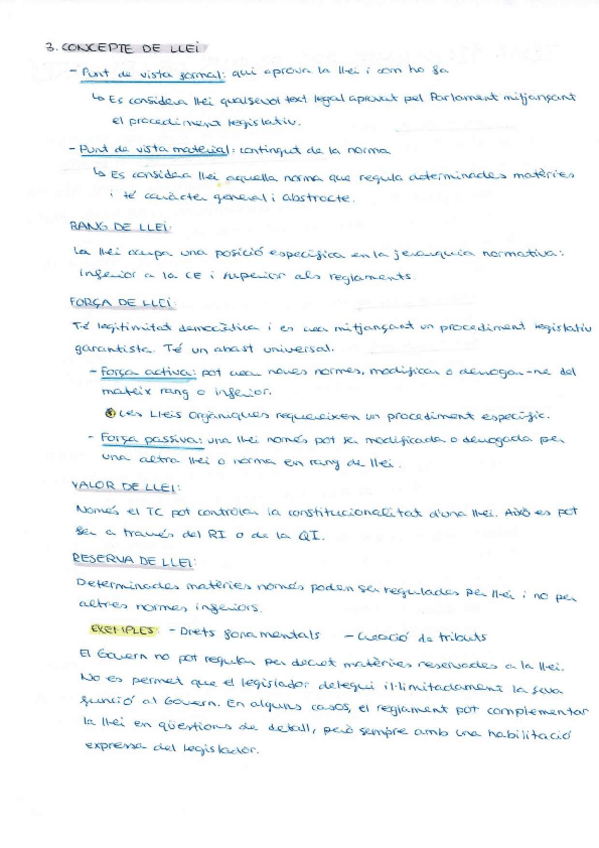 3. CONCEPTE DE LLEI
- Punt de vista formal: qui aprova la llei i com ho fa
↳ Es considera llei qualsevol text legal aprovat pel Parlament mitjançant
el procediment legislatiu.
- Punt de vista material: contingut de la norma
↳ Es considera llei aquella norma que regula determinades matèries
i té caràcter general i abstracte.
RANG DE LLEI:
La llei ocupa una posició específica en la jerarquia normativa:
Inferior a la CE i superior als reglaments.
FORÇA DE LLEI:
Té legitimitat democràtica i es crea mitjançant un procediment legislatiu
garantista. Té un abast universal.
- Força activa: pot crear noves normes, modificar o derogar-ne del
mateix rang o inferior.
Les Lleis Orgàniques requereixen un procediment específic.
- Força passiva: una llei només pot ser modificada o derogada per
una altra llei o norma en rang de llei.
VALOR DE LLEI:
Només el TC pot controlar la constitucionalitat d'una llei. Això es pot
fer a través del RI o de la QI.
RESERVA DE LLEI:
Determinades matèries només poden ser regulades per llei i no per
altres normes inferiors.
EXEMPLES: - Drets fonamentals - Creació de tributs
El Govern no pot regular per decret matèries reservades a la llei.
No es permet que el legislador delegui il·limitadament la seva
funció al Govern. En alguns casos, el reglament pot complementar
la llei en qüestions de detall, però sempre amb una habilitació
expressa del legislador.